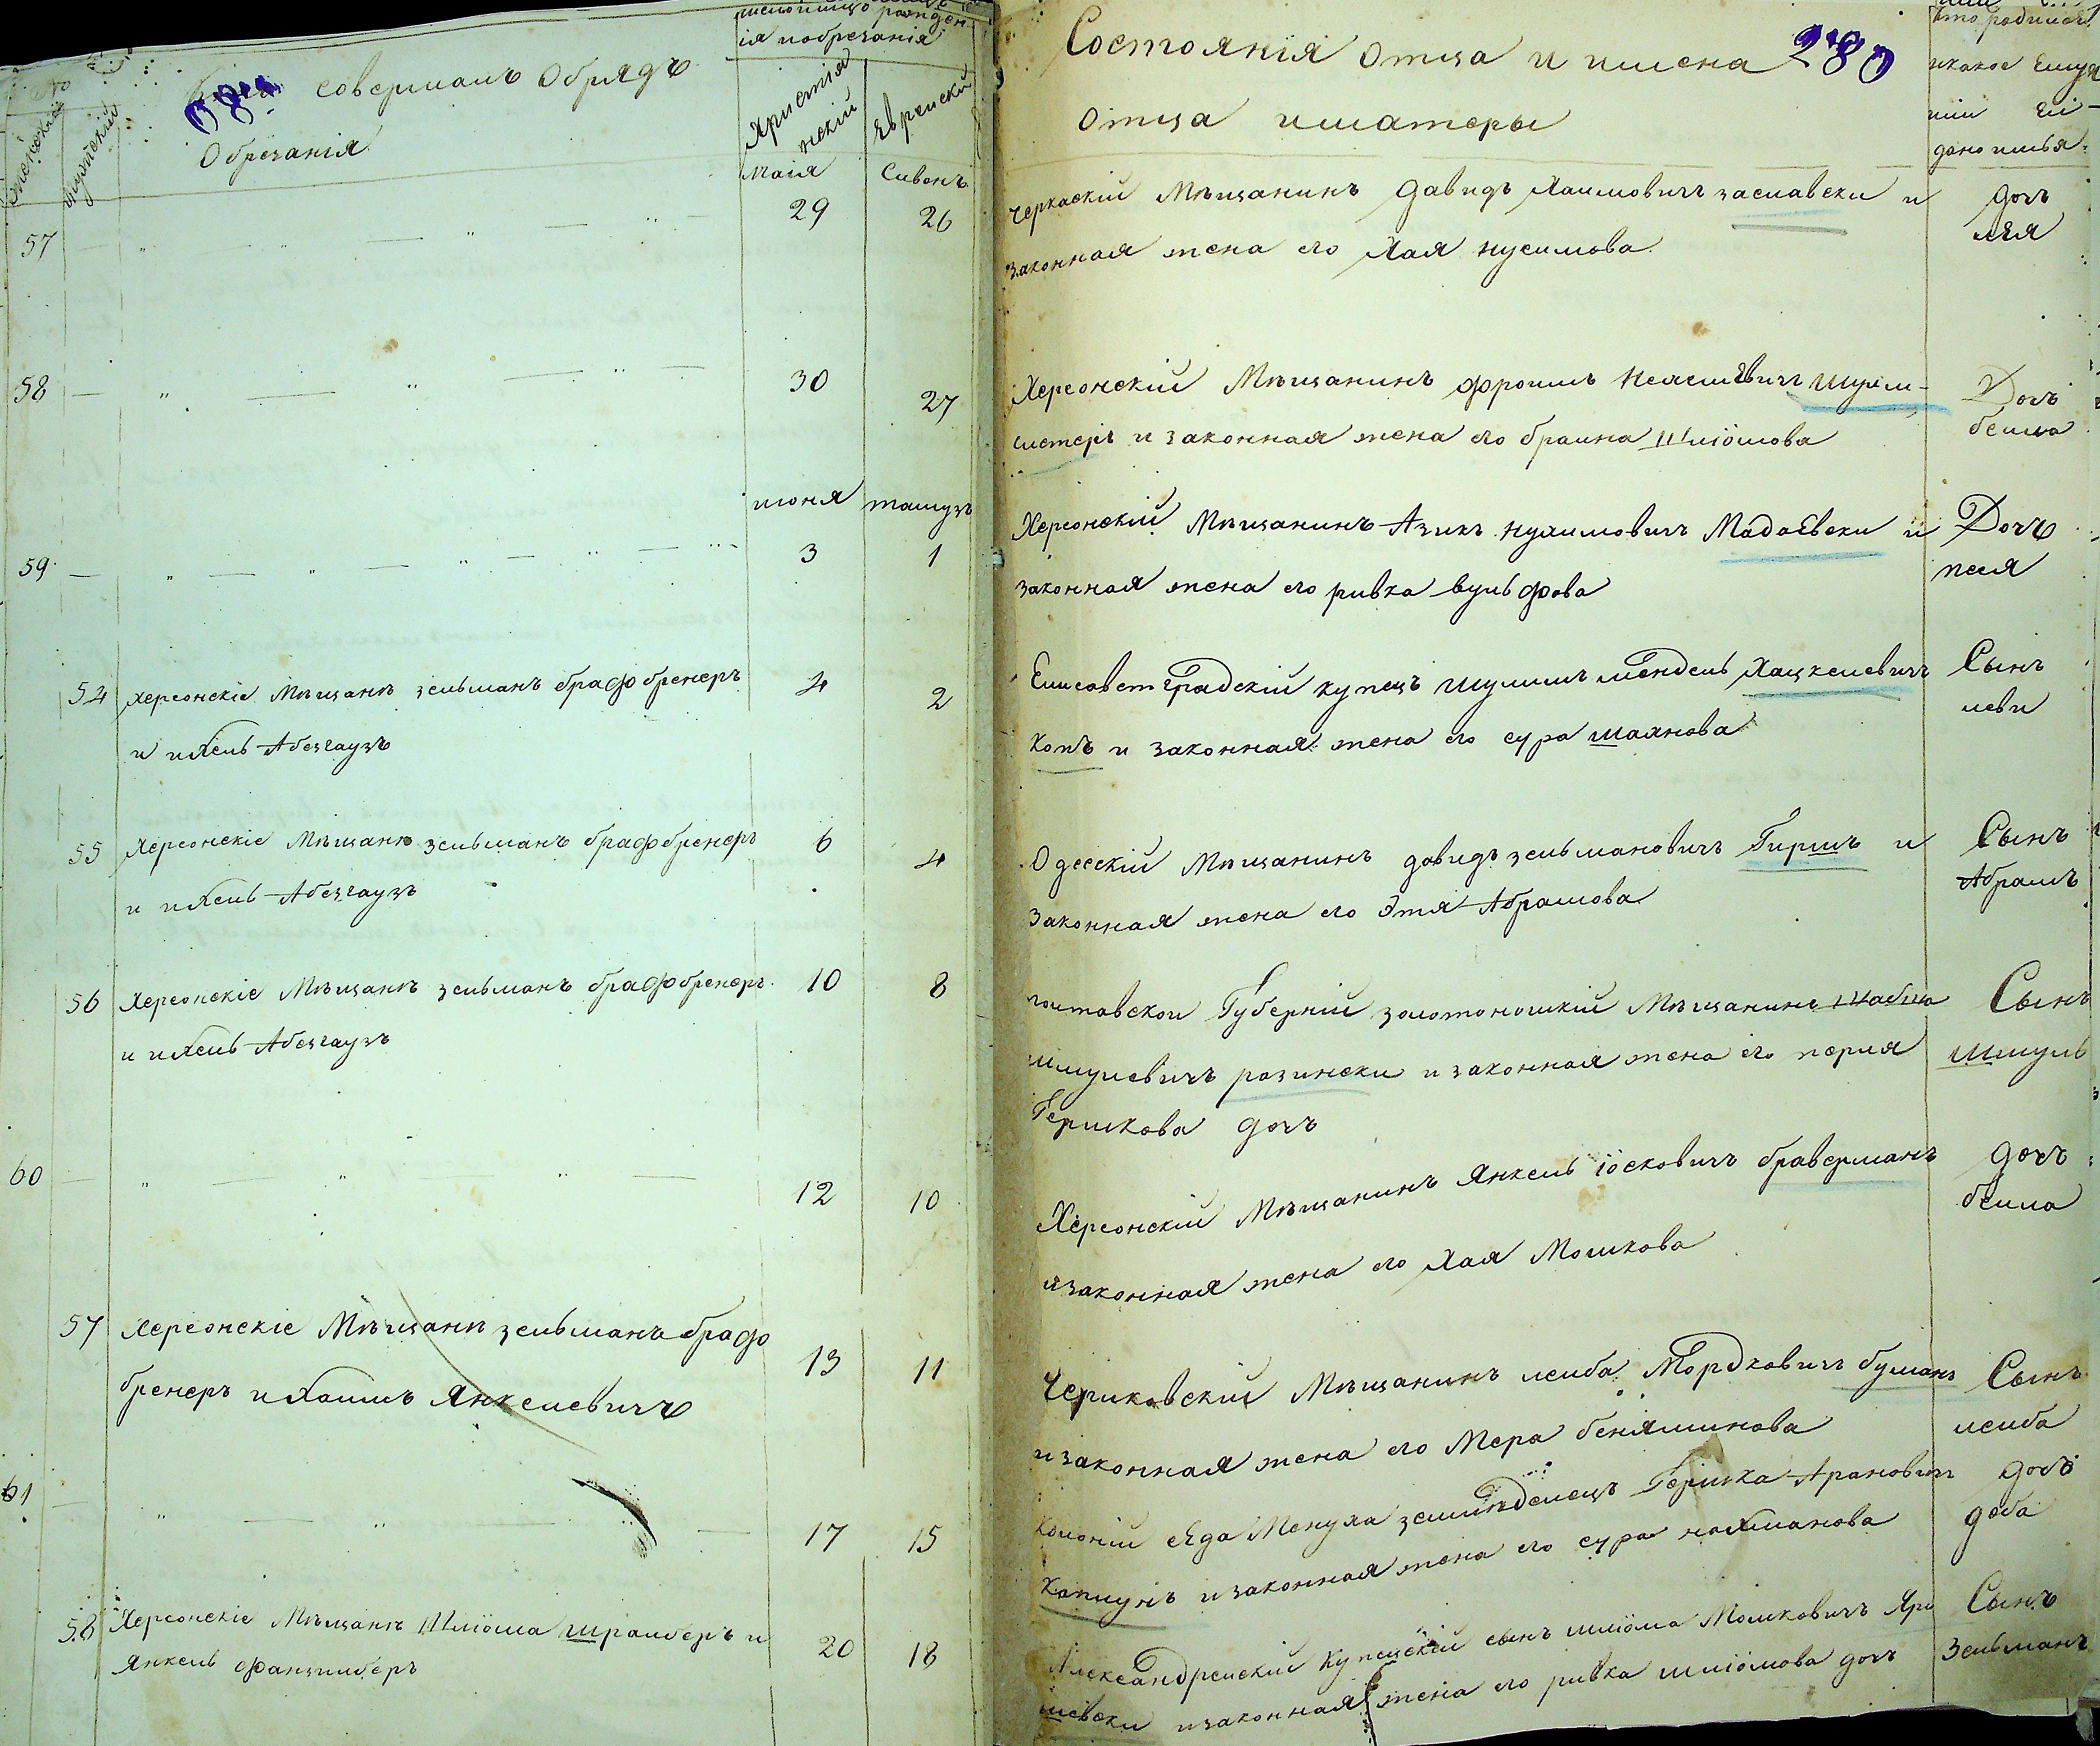 Кто совершалъ Обрядъ
Обрезанія
женскій
мужескій
Христіа
нскій
Еврейскій
ія и обрезанія
маія
Сивонъ
57 29 26
58 30 27
июня тамузъ
59 3 1
54 Херсонскіе Мѣщанѣ зельманъ брафбренеръ 4 2
и ихель Абезгаузъ
55 Херсонскіе Мѣщанѣ зельманъ брафбренеръ 6 4
и ихель Абезгаузъ
56 Херсонскіе Мѣщанѣ зельманъ брафбренеръ 10 8
и ихель Абезгаузъ
60 12 10
57 Херсонскіе Мѣщанѣ зельманъ браф 13 11
бренеръ и Хаимъ Янкелевичъ
61 17 15
58 Херсонскіе Мѣщанѣ Шліома шрайберъ и 20 18
Янкель Фанзилберъ
Состоянія Отца и имена 280
Отца и матери
Кто родился
и какое Ему
или Ей
дано имья
Черкаскій Мѣщанинъ Давидъ Хаимовичъ заславски и
законная жена его Хая нусимова
дочъ
лея
Херсонскій Мѣщанинъ фроимъ Нехемевичъ Шулм-
истеръ и законная жена его браина Шліомова
Дочъ
беила
Херсонскій Мѣщанинъ Азикъ нухимовичъ Мадаевски и
законная жена его ривка вульфова
Дочъ
песя
Елисаветградскій купецъ шулимъ мендель Хацкелевичъ
Копъ и законная жена его сура шахнова
Сынъ
леви
Одесскій Мѣщанинъ давидъ зельмановичъ Гиршъ и
законная жена его Этя Абрамова
Сынъ
Абрамъ
полтавскои Губерній золотоношкій Мѣщанинъ Шабша
шмулевичъ разински и законная жена его перля
Гершкова дочъ
Сынъ
Шмуль
Херсонскій Мѣщанинъ Янкель іосковичъ браверманъ
и законная жена его Хая Мошкова
дочъ
беила
Чериковскій Мѣщанинъ леиба Мордковичъ буманъ
и законная жена его Мера бениаминова
Сынъ
леиба
Колоній сЕда Менуха земледелецъ Гершка Арановичъ
Капшукъ и законная жена его сура нахманова
дочъ
доба
Александрейскій купецскій сынъ шліома Мошковичъ Яри
шевски и законная жена его ривка шліомова дочъ
Сынъ
зельманъ